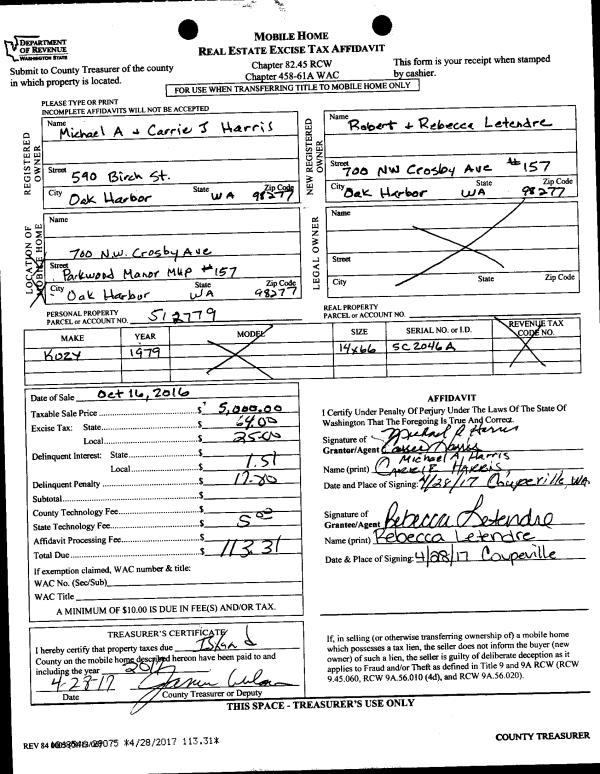 DEPARTMENT
OF REVENUE
WASHINGTON STATE
MOBILE HOME
REAL ESTATE EXCISE TAX AFFIDAVIT
Submit to County Treasurer of the county
in which property is located.
Chapter 82.45 RCW
Chapter 458-61A WAC
This form is your receipt when stamped
by cashier.
FOR USE WHEN TRANSFERRING TITLE TO MOBILE HOME ONLY
PLEASE TYPE OR PRINT
INCOMPLETE AFFIDAVITS WILL NOT BE ACCEPTED
REGISTERED
OWNER
Name
Michael A + Carrie J Harris
Street 590 Birch St.
City Oak Harbor State WA Zip Code 98277
NEW REGISTERED
OWNER
Name
Robert + Rebecca Letendre
Street 700 NW Crosby Ave #157
City Oak Harbor State WA Zip Code 98277
LOCATION OF
MOBILE HOME
Name
700 N.W. Crosby Ave
Street Parkwood Manor MHP #157
City Oak Harbor State WA Zip Code 98277
LEGAL OWNER
Name
Street
City State Zip Code
PERSONAL PROPERTY
PARCEL or ACCOUNT NO. 512779
REAL PROPERTY
PARCEL or ACCOUNT NO.
MAKE YEAR MODEL SIZE SERIAL NO. or I.D. REVENUE TAX
CODE NO.
Kozy 1979 14x66 SC2046A
Date of Sale Oct 16, 2016
Taxable Sale Price $ 5,000.00
Excise Tax: State $ 64.00
Local $ 25.00
Delinquent Interest: State $ 1.51
Local $
Delinquent Penalty $ 17.80
Subtotal $
County Technology Fee $
State Technology Fee $ 5.00
Affidavit Processing Fee $
Total Due $ 113.31
If exemption claimed, WAC number & title:
WAC No. (Sec/Sub)
WAC Title
A MINIMUM OF $10.00 IS DUE IN FEE(S) AND/OR TAX.
AFFIDAVIT
I Certify Under Penalty Of Perjury Under The Laws Of The State Of
Washington That The Foregoing Is True And Correct.
Signature of
Grantor/Agent
Michael A. Harris
Name (print) CARRIE HARRIS
Date and Place of Signing: 4/28/17 Coupeville, WA
Signature of
Grantee/Agent Rebecca Letendre
Name (print) Rebecca Letendre
Date & Place of Signing: 4/28/17 Coupeville
TREASURER'S CERTIFICATE
I hereby certify that property taxes due Island
County on the mobile home described hereon have been paid to and
including the year 2017
4-28-17
Date County Treasurer or Deputy
If, in selling (or otherwise transferring ownership of) a mobile home
which possesses a tax lien, the seller does not inform the buyer (new
owner) of such a lien, the seller is guilty of deliberate deception as it
applies to Fraud and/or Theft as defined in Title 9 and 9A RCW (RCW
9.45.060, RCW 9A.56.010 (4d), and RCW 9A.56.020).
THIS SPACE - TREASURER'S USE ONLY
REV 84 *4/28/2017 113.31*
COUNTY TREASURER